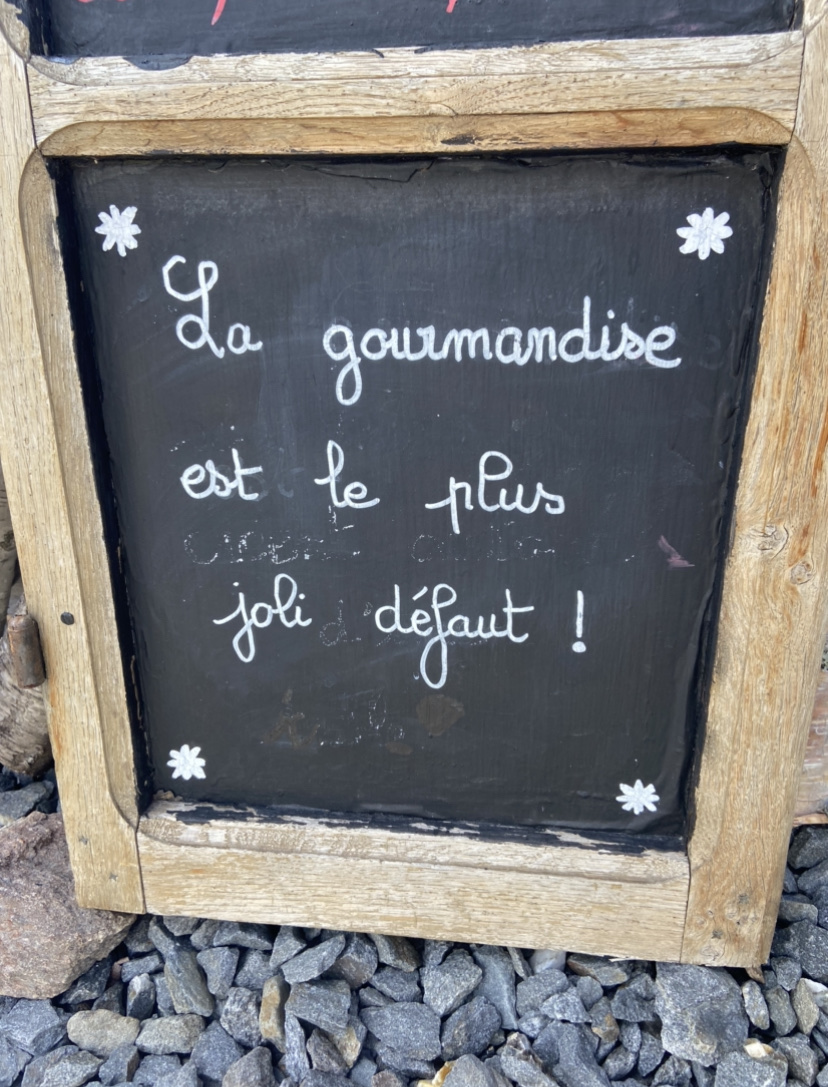 La gourmandise
est le plus
joli défaut !